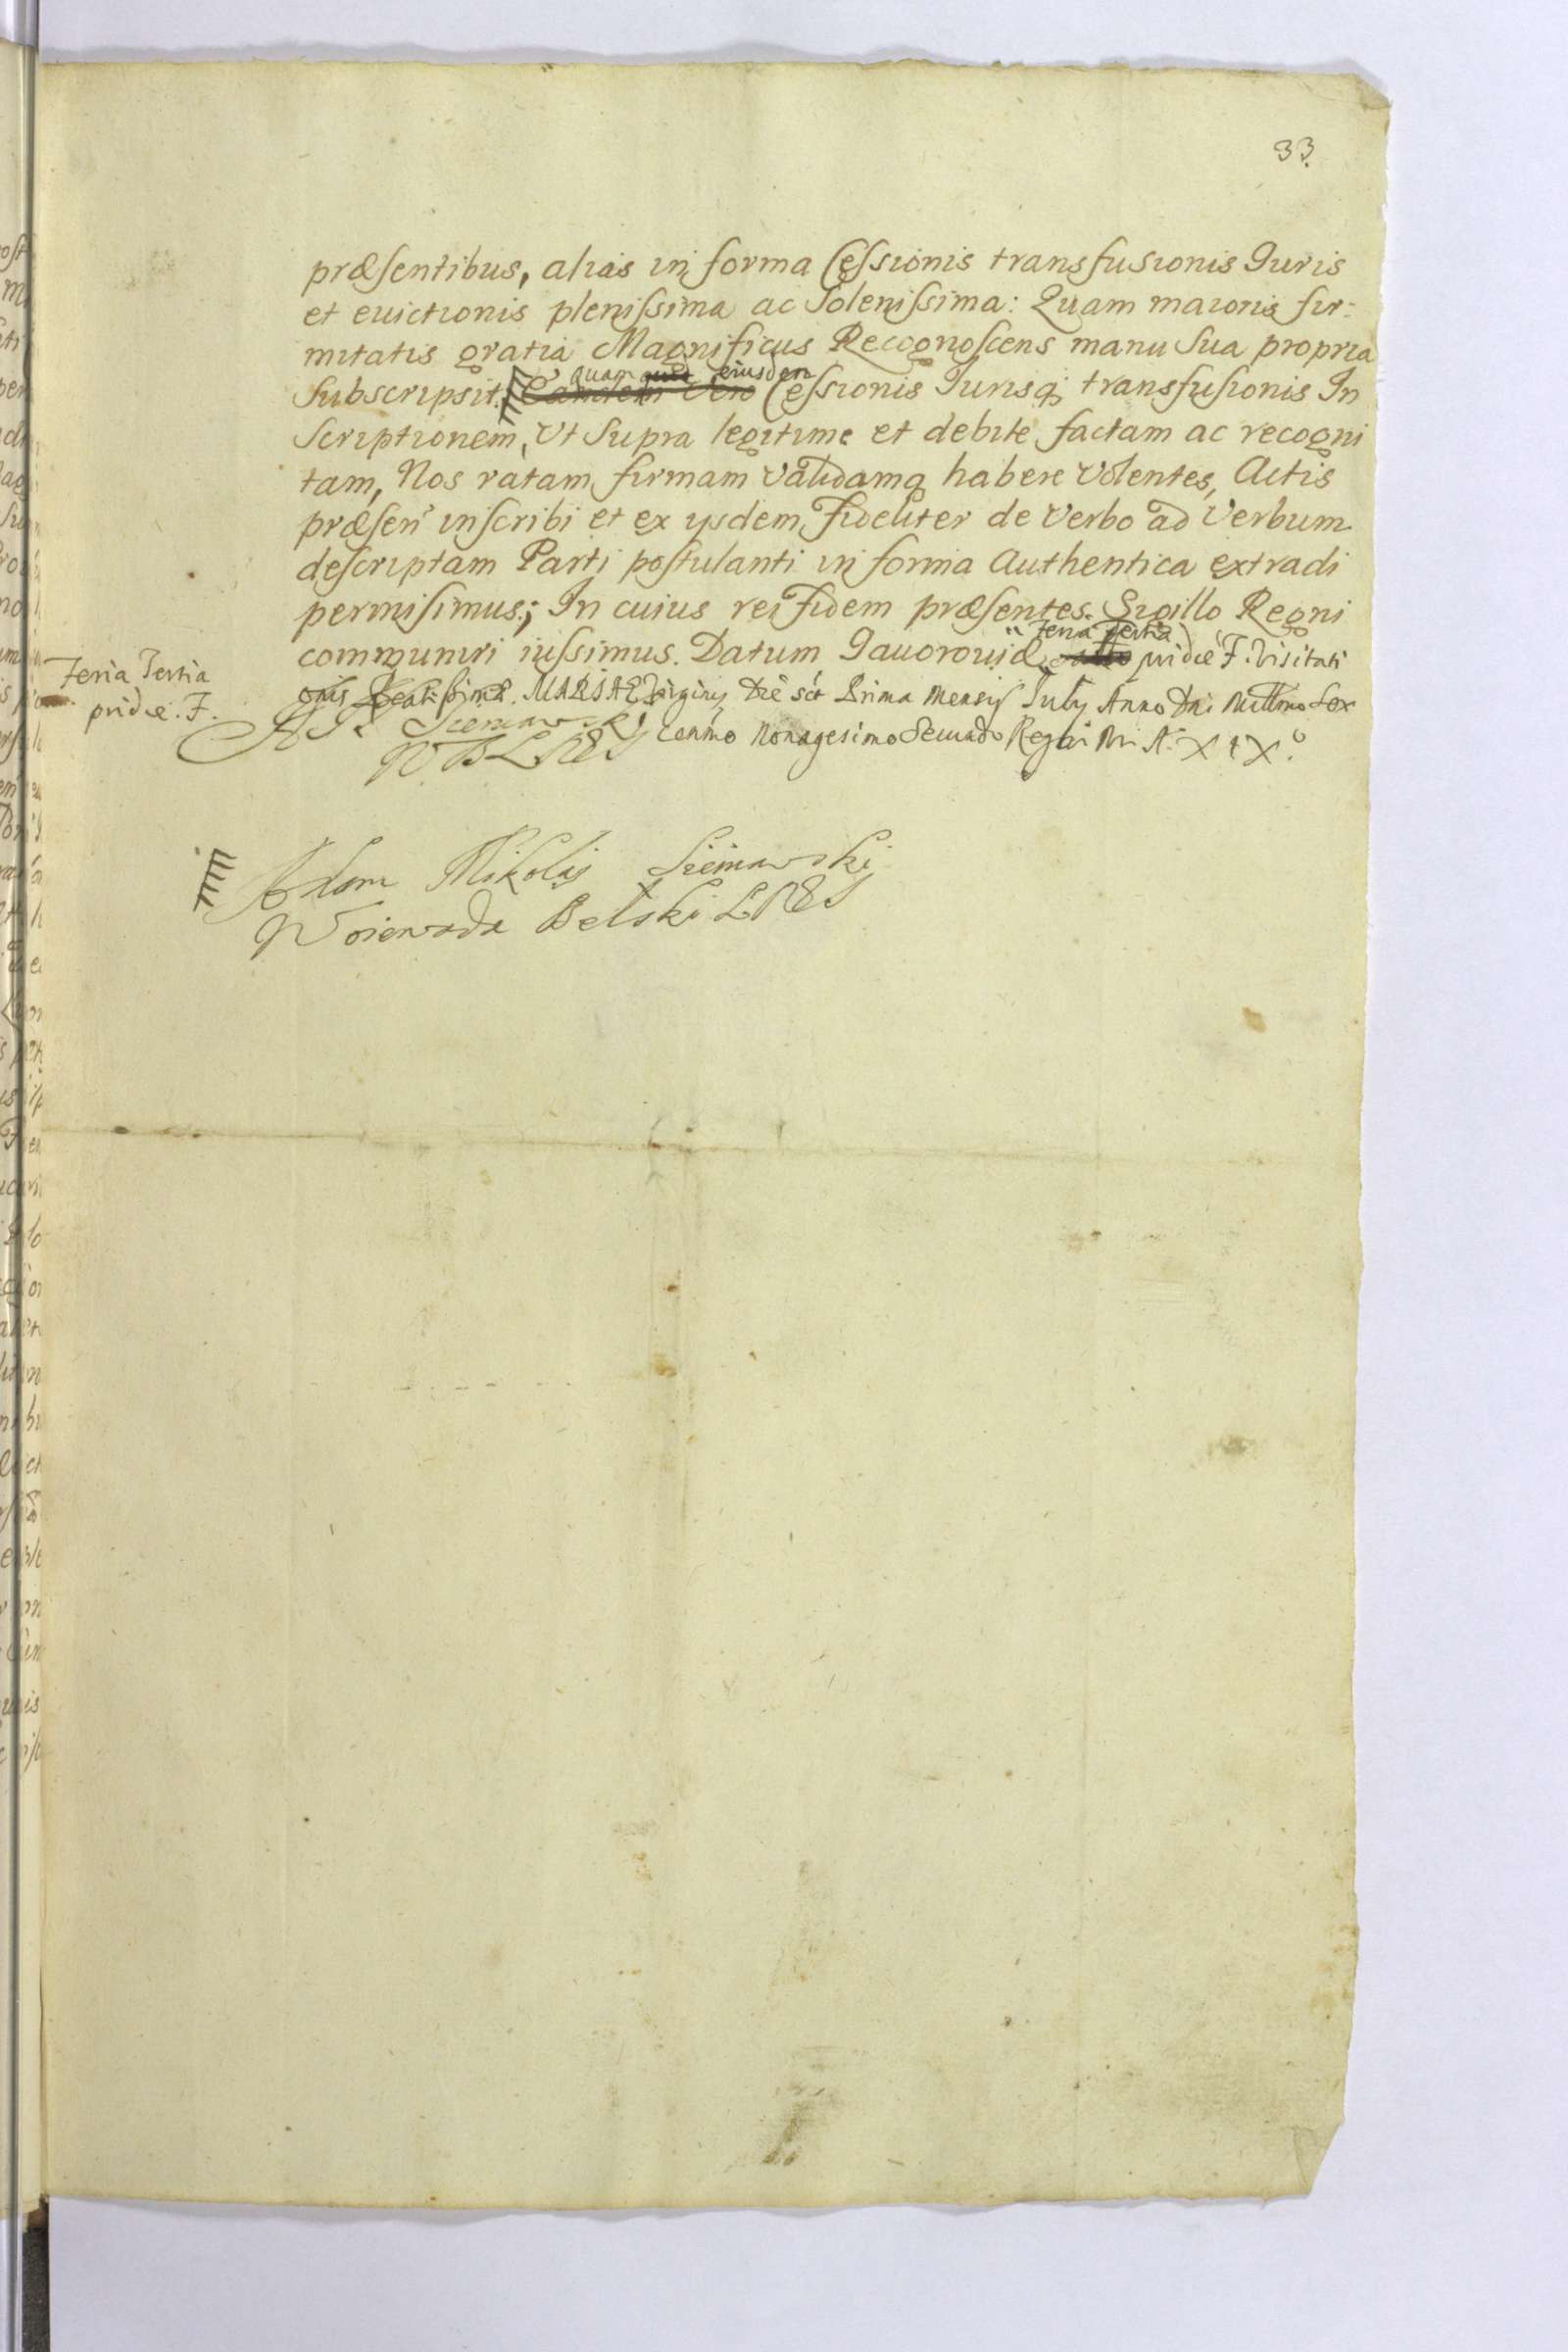 33.
præsentibus, alias in forma Cessionis transfusionis Iuris
et euictionis plenissima ac Solenissima: Quam maioris fir:
mitatis gratia Magnificus Recognoscens manu Sua propria
quam eiusdem
Subscripsit. Eandem Vero Cessionis Iurisq; transfusionis In
Scriptionem, Ut Supra legitime et debite factam ac recogni
tam, Nos ratam firmam Validamq habere Volentes, Actis
præsen inscribi et ex ijsdem fideliter de Verbo ad Verbum
descriptam Parti postulanti in forma Authentica extradi
permisimus; In cuius rei fidem præsentes Sigillo Regni
Feria Tertia
communiri iussimus. Datum Iauorouiæ pridie F. Visitati
Feria Tertia
pridie. F.
onis Beatissimæ MARIAE Virginis Die Prima Mensis July Anno Dni Millmo Sex
centmo Nonagesimo Secundo Regni Nri A. XIX.
A Sieniawski
WBLRS
Adam Mikołaj Sieniawski
Woiewoda Belski